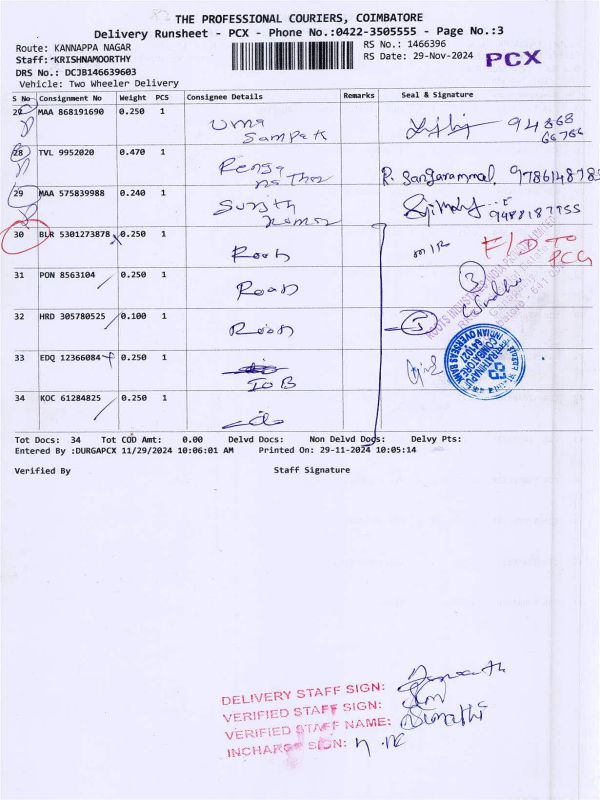 THE PROFESSIONAL COURIERS, COIMBATORE
Delivery Runsheet - PCX - Phone No.:0422-3505555 - Page No.:3
Route: KANNAPPA NAGAR
RS No.: 1466396
Staff: KRISHNAMOORTHY
RS Date: 29-Nov-2024
PCX
DRS No.: DCJB146639603
Vehicle: Two Wheeler Delivery
S No Consignment No Weight PCS Consignee Details Remarks Seal & Signature
27 MAA 868191690 0.250 1 Uma Sampak 94868 66766
28 TVL 9952020 0.470 1 R. Sangarammal
29 MAA 575839988 0.240 1 Sujith Kumar
30 BLR 5301273878 0.250 1 Roots F/D To PCG
31 PON 8563104 0.250 1 Roots 3
32 HRD 305780525 0.100 1 Roots
33 EDQ 12366084 0.250 1 IOB
34 KOC 61284825 0.250 1
INDIAN OVERSEAS BANK
COIMBATORE
641027
Tot Docs: 34 Tot COD Amt: 0.00 Delvd Docs: Non Delvd Docs: Delvy Pts:
Entered By :DURGAPCX 11/29/2024 10:06:01 AM Printed On: 29-11-2024 10:05:14
Verified By Staff Signature
DELIVERY STAFF SIGN:
VERIFIED STAFF SIGN:
VERIFIED STAFF NAME: Sumathi
INCHARGE SIGN: